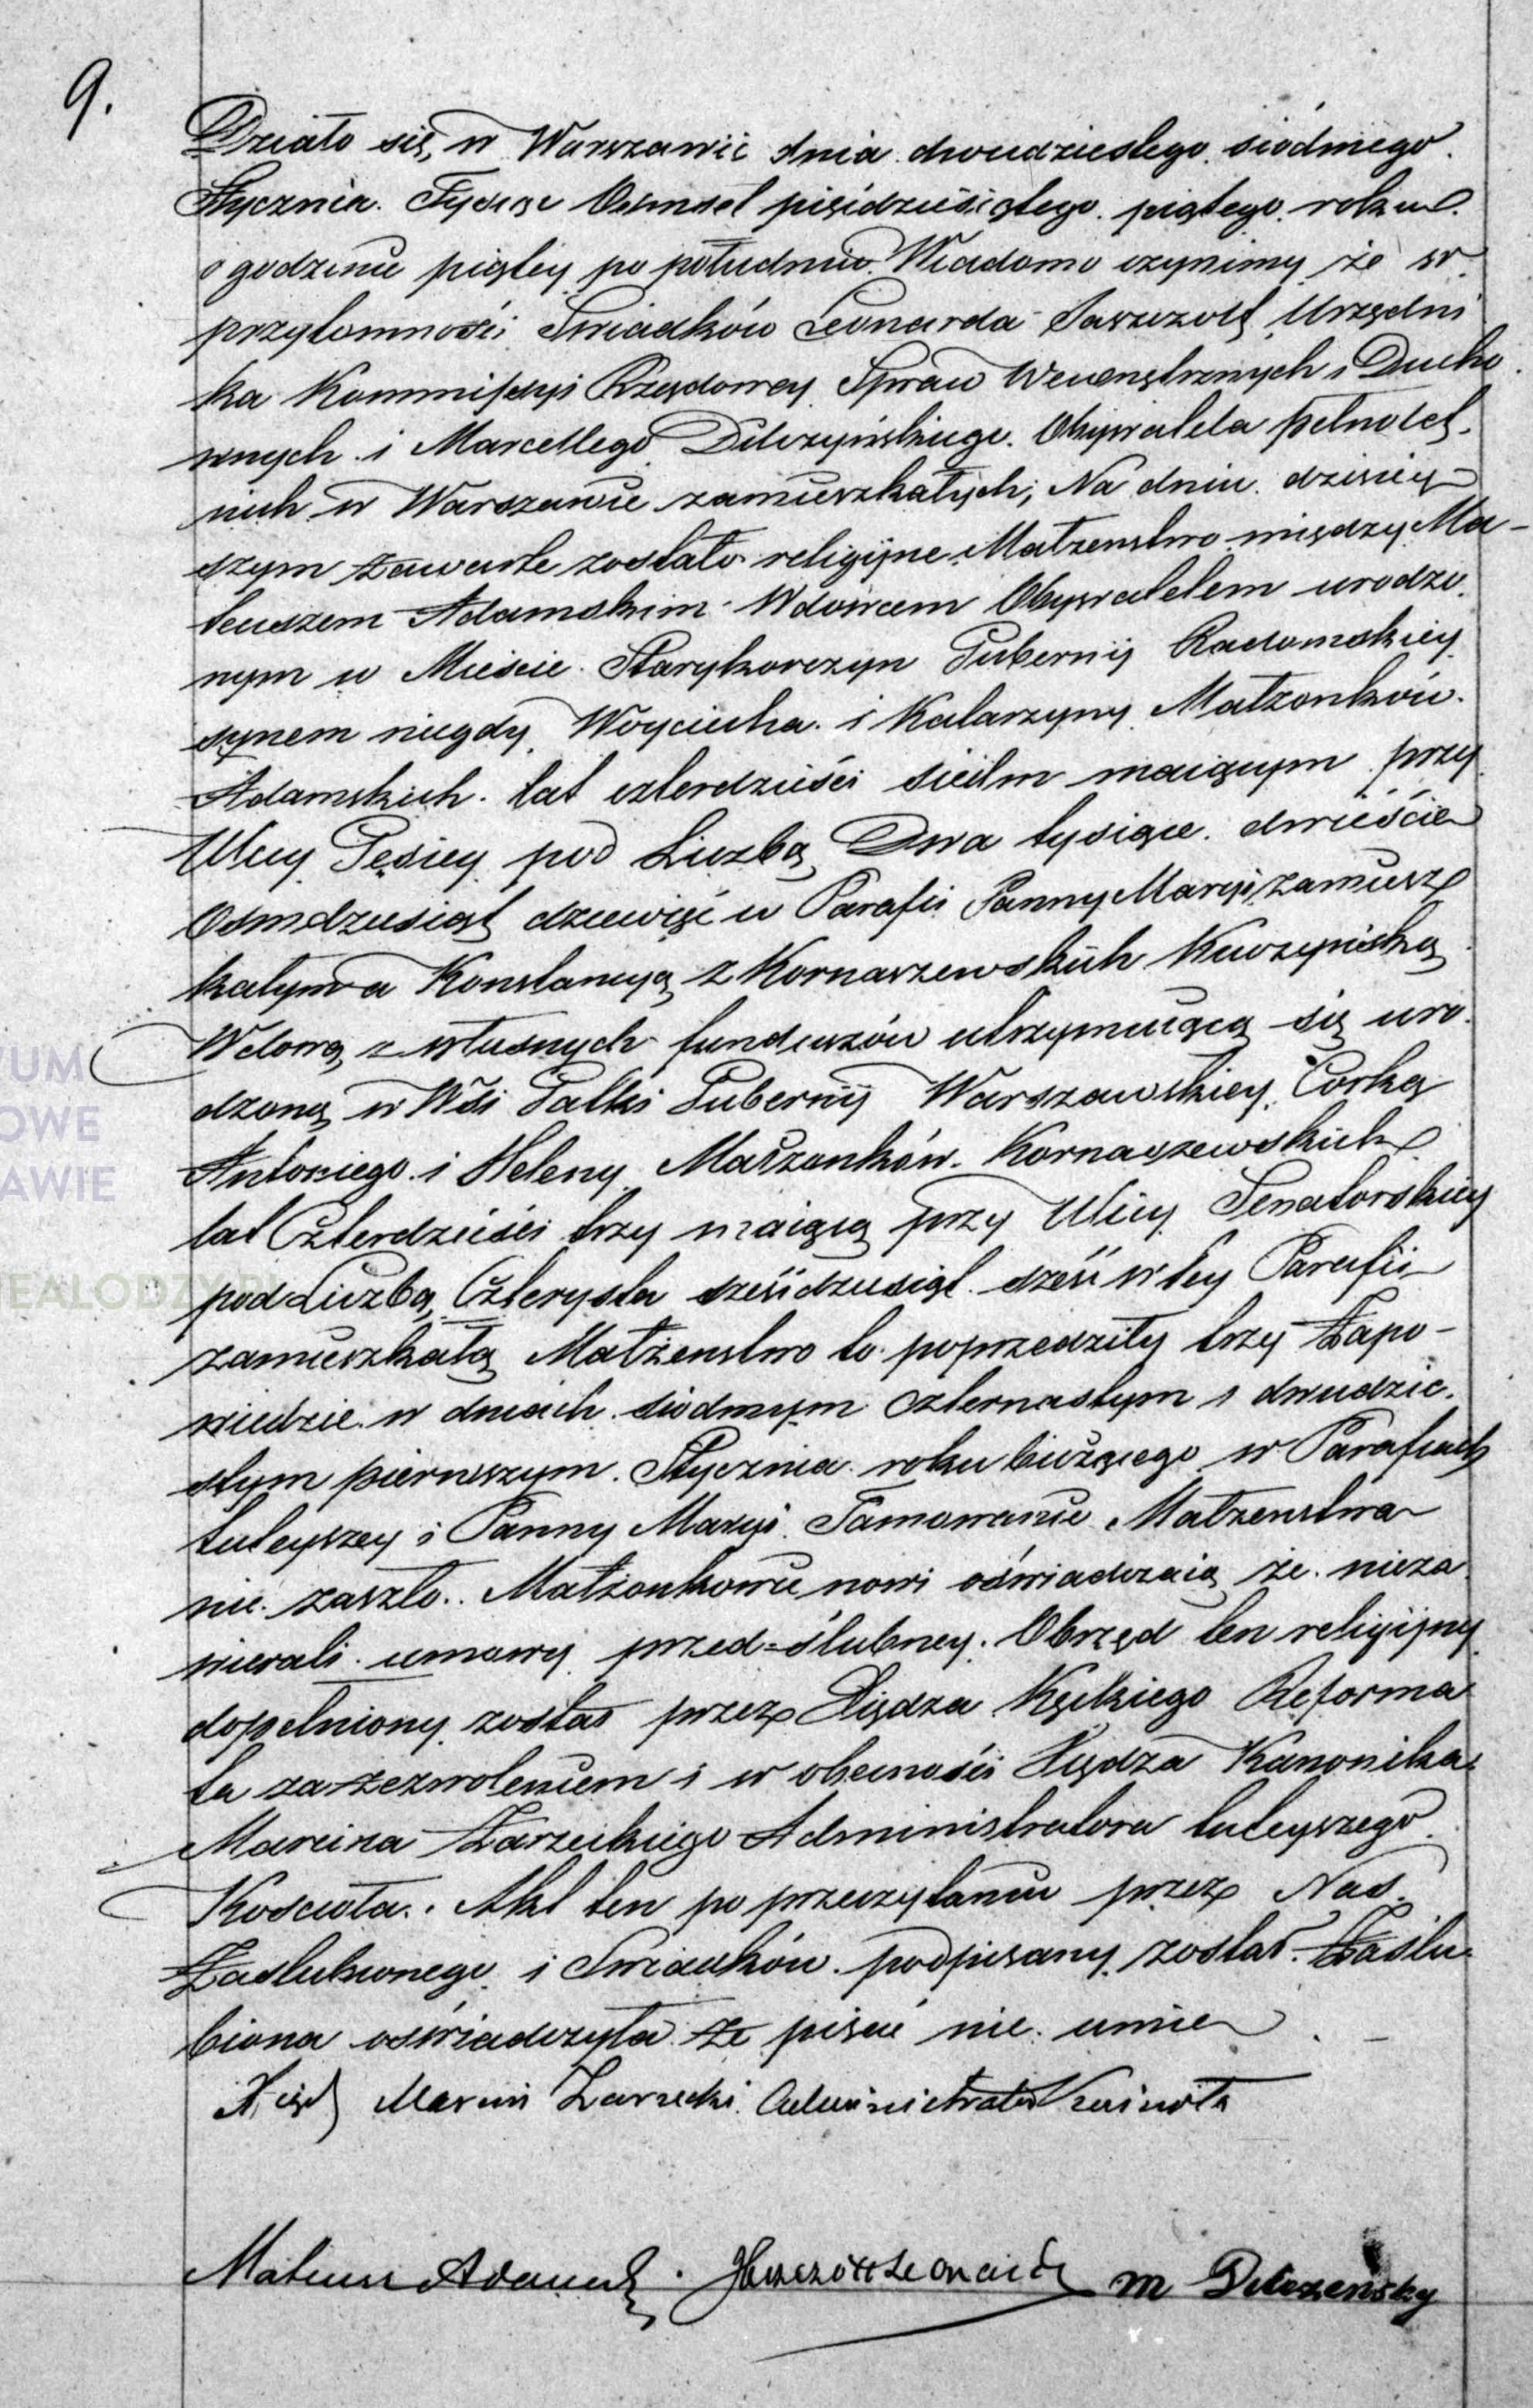 9.
Działo się w Warszawie dnia dwudziestego siódmego
Stycznia Tysiąc Ośmset pięśdziesiątego piątego roku
o godzinie piątey po południu Wiadomo czynimy że w
przytomności Swiadków Leonarda Jaszczołt Urzędni
ka Kommissyi Rządowey Spraw Wewnętrznych i Ducho
wnych i Marcellego Obywatela pełnolet
nich w Warszawie zamieszkałych; Na dniu dzisiey
szym zawarte zostało religijne Małżenstwo między Ma-
teuszem Adamskim Wdowcem Obywatelem urodzo
nym w Mieście Starykorczyn Gubernij Radomskiey
synem niegdy Woyciecha i Katarzyny Małżonków
Adamskich lat czterdzieści siedm maiącym przy
Ulicy Gęsiey pod Liczbą Dwa tysiące dwieście
Osmdziesiąt dziewięć w Parafii Panny Maryi zamiesz
kałym a Konstancyą z Kornaszewskich Kuczyńską
Wdową z własnych funduszów utrzymuiącą się uro
dzoną w Wsi Gałki Gubernij Warszawskiey Corką
Antoniego i Heleny Małżonków Kornaszewskich
lat Czterdzieści trzy maiącą przy Ulicy Senatorskiey
pod Liczbą Czterysta sześćdziesiąt sześć w tey Parafii
zamieszkałą Małżenstwo to poprzedziły trzy Zapo-
wiedzie w dniach siódmym czternastym i dwudzie
stym pierwszym Stycznia roku bieżącego w Parafiach
tuteyszey i Panny Maryi Tamowanie Małżenstwa
nie zaszło. Małżonkowie nowi oświadczaią że nieza
wierali umowy przed=ślubney. Obrzęd ten religijny
dopełniony został przez Xiędza Kęckiego Reforma
ta za zezwoleniem i w obecności Xiędza Kanonika
Marcina Zarzeckiego Administratora tuteyszego
Kościoła. Akt ten po przeczytaniu przez Nas
Zaślubionego i Swiadków podpisany został. Zaślu
biona oświadczyła że pisać nie umie
Xiądz Marcin Zarzecki Administrator Kościoła
Mateusz Adamski Jaszczołt Leonard M